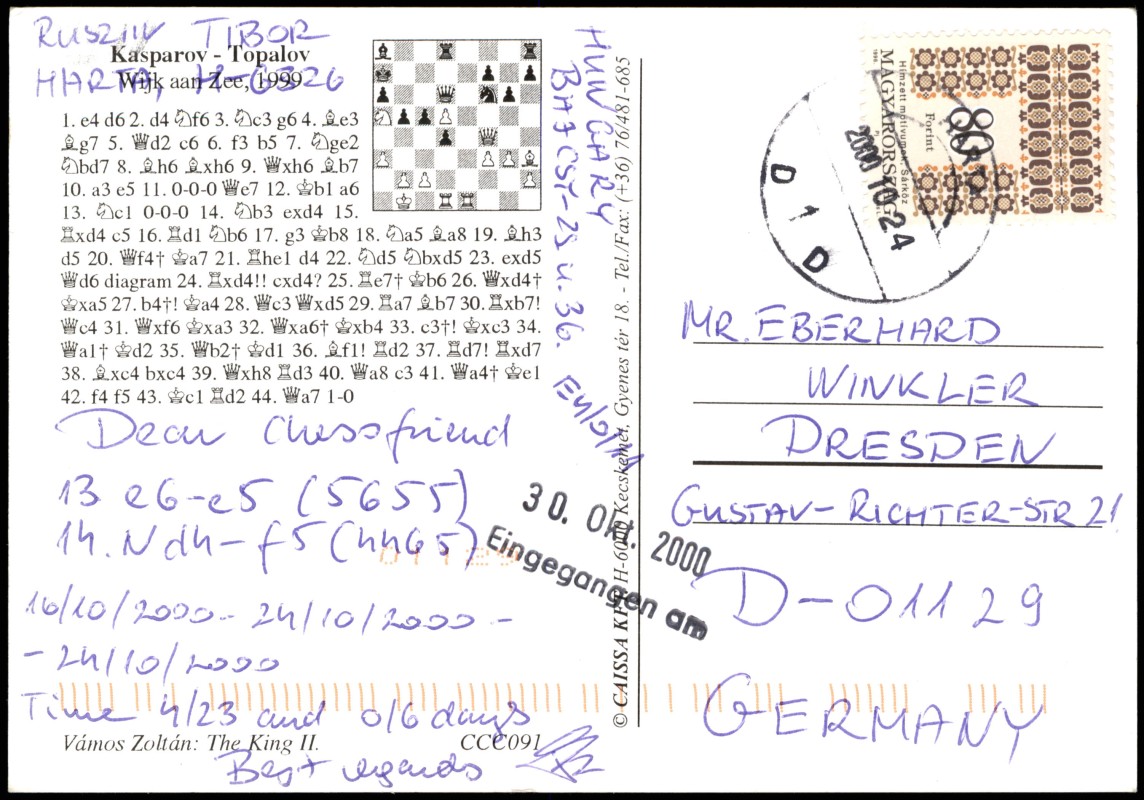 RUSZIN TIBOR
HARTA, H-6326
HUNGARY
Kasparov - Topalov
Wijk aan Zee, 1999
1. e4 d6 2. d4 ♘f6 3. ♘c3 g6 4. ♗e3
♗g7 5. ♕d2 c6 6. f3 b5 7. ♘ge2
♘bd7 8. ♗h6 ♗xh6 9. ♕xh6 ♗b7
10. a3 e5 11. 0-0-0 ♕e7 12. ♔b1 a6
13. ♘c1 0-0-0 14. ♘b3 exd4 15.
♖xd4 c5 16. ♖d1 ♘b6 17. g3 ♔b8 18. ♘a5 ♗a8 19. ♗h3
d5 20. ♕f4† ♔a7 21. ♖he1 d4 22. ♘d5 ♘bxd5 23. exd5
♕d6 diagram 24. ♖xd4!! cxd4? 25. ♖e7† ♔b6 26. ♕xd4†
♔xa5 27. b4†! ♔a4 28. ♕c3 ♕xd5 29. ♖a7 ♗b7 30. ♖xb7!
♕c4 31. ♕xf6 ♔xa3 32. ♕xa6† ♔xb4 33. c3†! ♔xc3 34.
♕a1† ♔d2 35. ♕b2† ♔d1 36. ♗f1! ♖d2 37. ♖d7! ♖xd7
38. ♗xc4 bxc4 39. ♕xh8 ♖d3 40. ♕a8 c3 41. ♕a4† ♔e1
42. f4 f5 43. ♔c1 ♖d2 44. ♕a7 1-0
Dear Chessfriend
13 e6-e5 (5655)
14. Nd4-f5 (4465)
01129
16/10/2000 - 24/10/2000 -
- 24/10/2000
Time 4/23 and 0/6 days
Vámos Zoltán: The King II.
CCC091
Best regards
© CAISSA KFT. H-6000 Kecskemét, Gyenes tér 18. - Tel./Fax: (+36) 76/481-685
30. Okt. 2000
Eingegangen am
Hímzett motívumok, Sárköz
MAGYARORSZÁG
80
Forint
2000 10-24
D 1 D
MR. EBERHARD
WINKLER
DRESDEN
GUSTAV-RICHTER-STR 21
D-01129
GERMANY